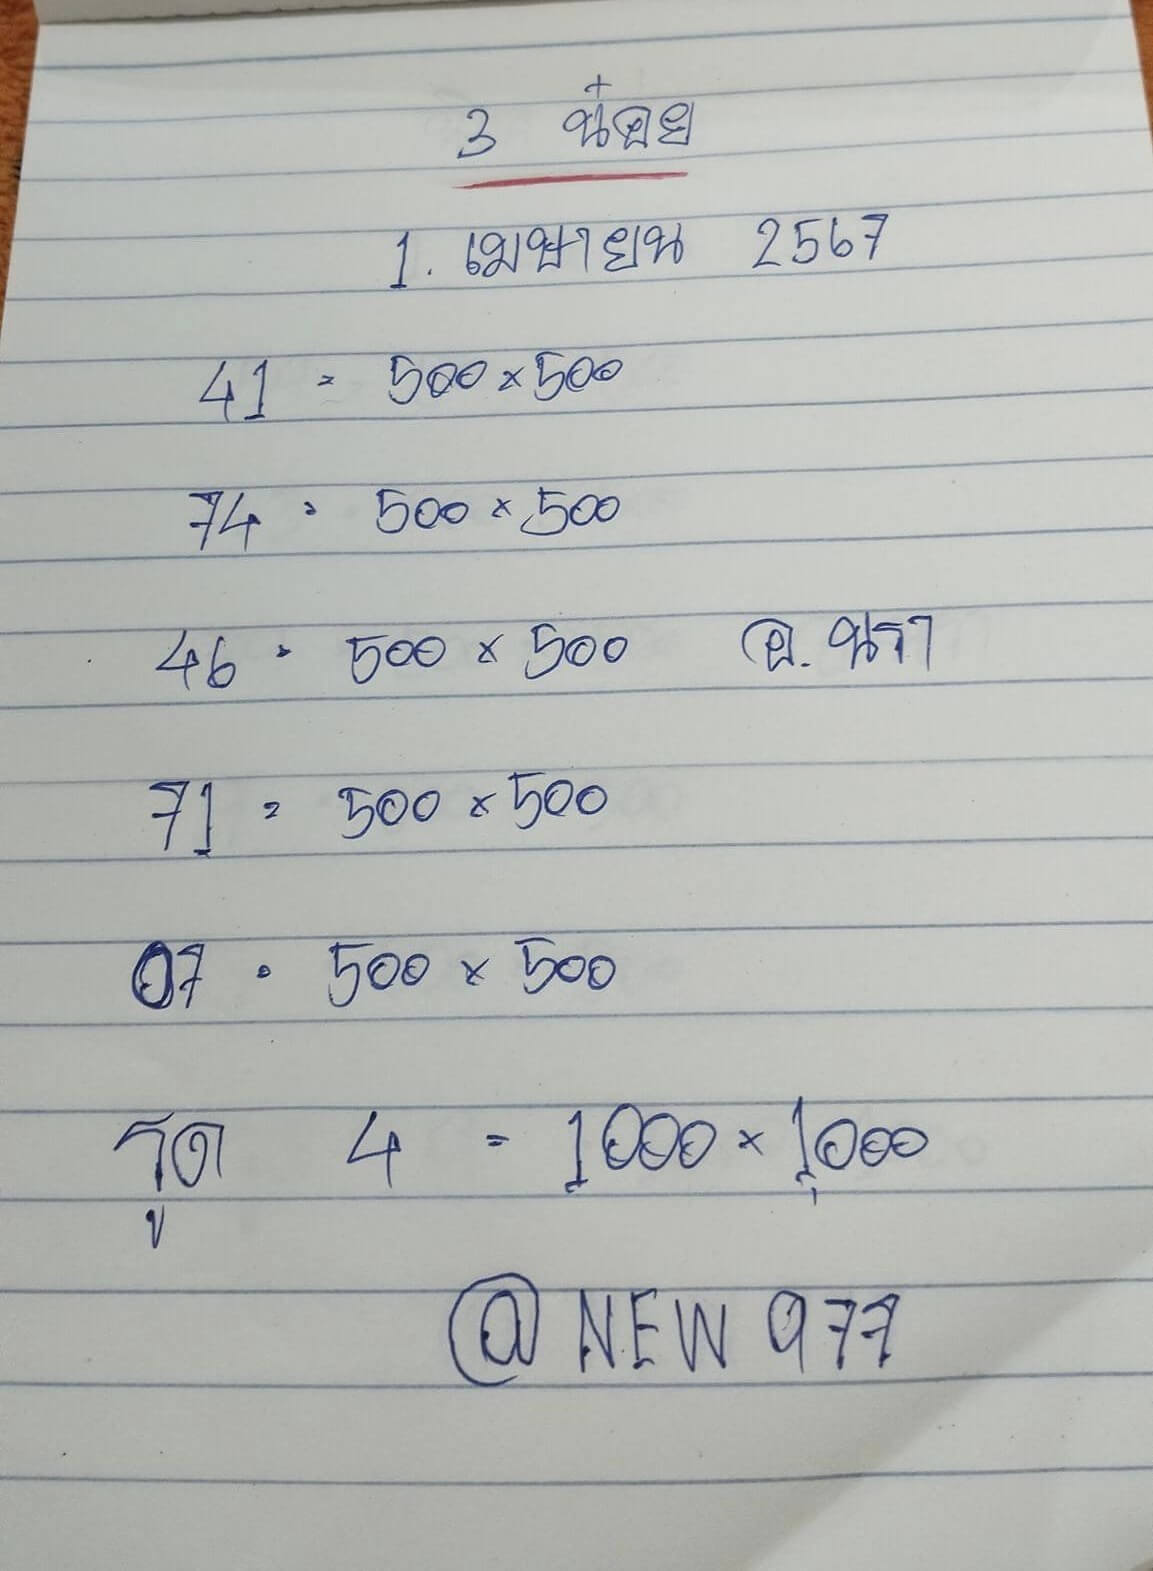 3 น๋อย
1. เมษายน 2567
41 = 500 × 500
74 = 500 × 500
46 = 500 × 500 อ. นรา
71 = 500 × 500
07 = 500 × 500
รูด 4 = 1000 × 1000
@ NEW 977